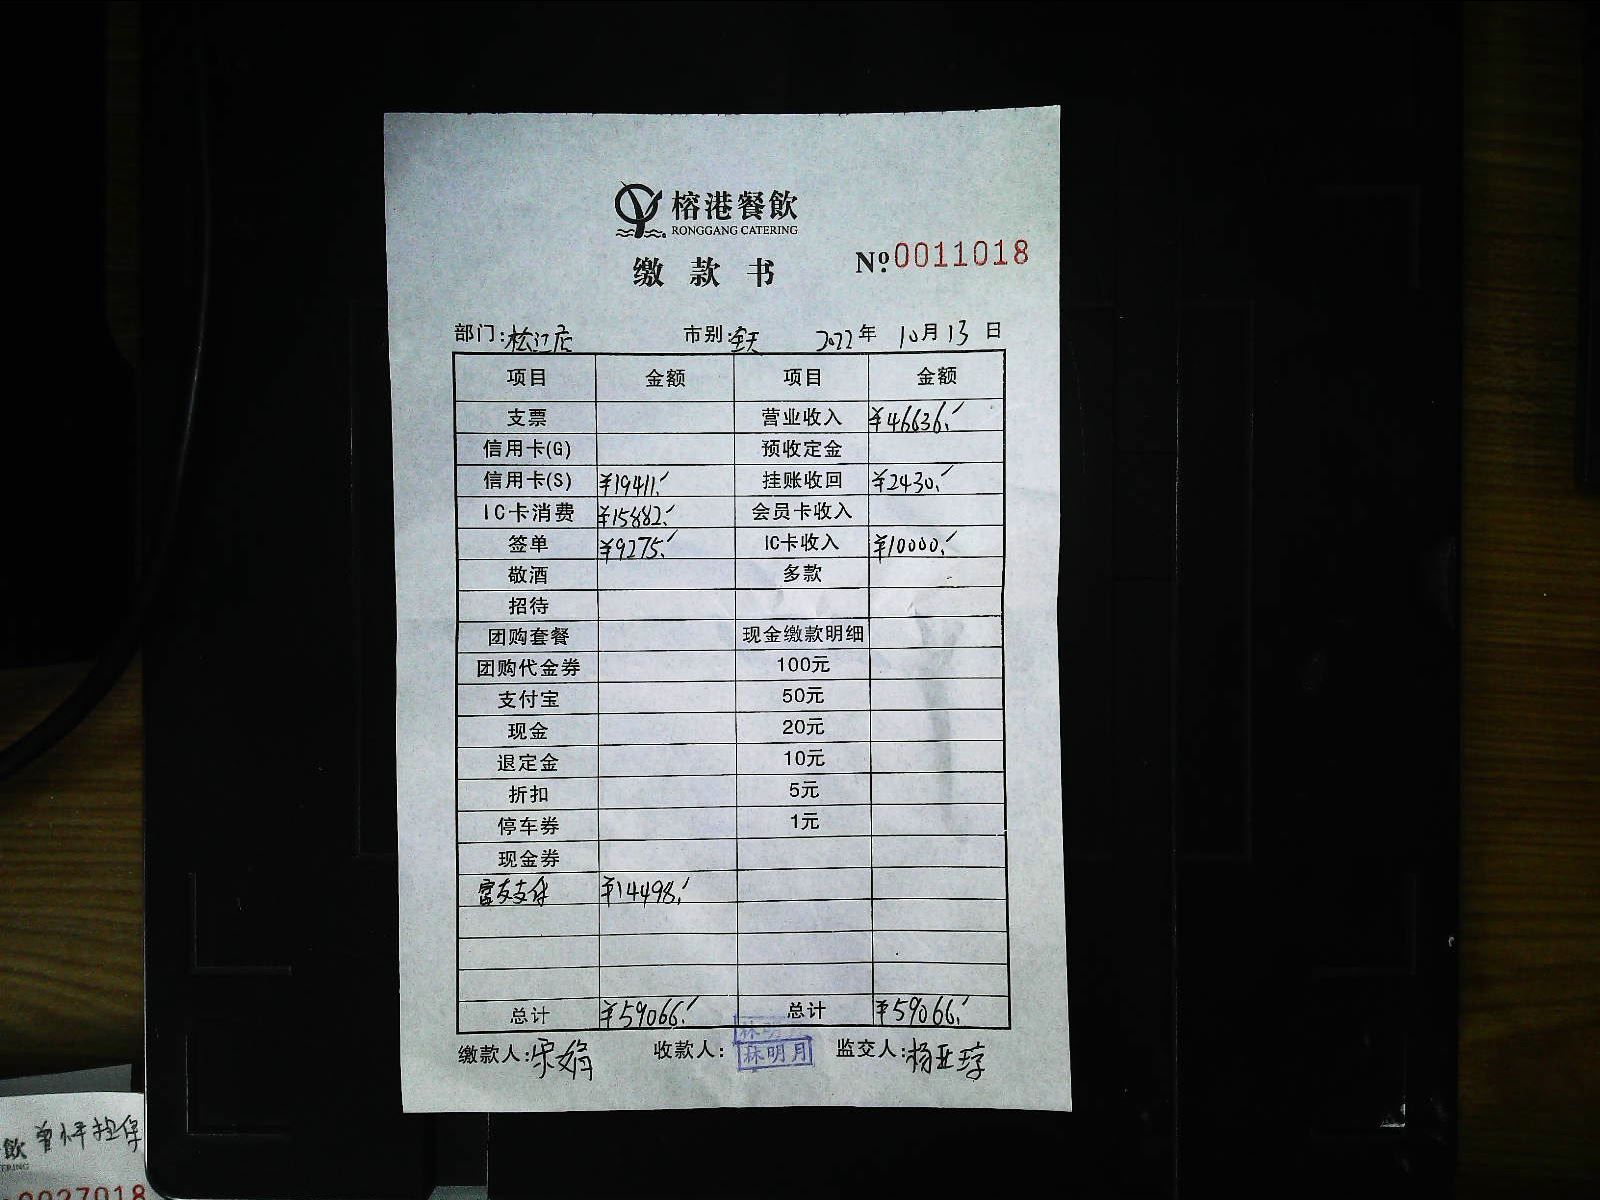 榕港餐飲
RONGGANG CATERING
缴款书 №0011018
部门:松江店 市别:全天 2022年 10月13日
项目 金额 项目 金额
支票 营业收入 ¥46636.
信用卡(G) 预收定金
信用卡(S) ¥19411. 挂账收回 ¥2430.
IC卡消费 ¥15882. 会员卡收入
签单 ¥9275. IC卡收入 ¥10000.
敬酒 多款
招待
团购套餐 现金缴款明细
团购代金券 100元
支付宝 50元
现金 20元
退定金 10元
折扣 5元
停车券 1元
现金券
富友支付 ¥14498.
总计 ¥59066. 总计 ¥59066.
缴款人:宋娟 收款人:林明月 监交人:杨亚琼
飲
ERING
0027018